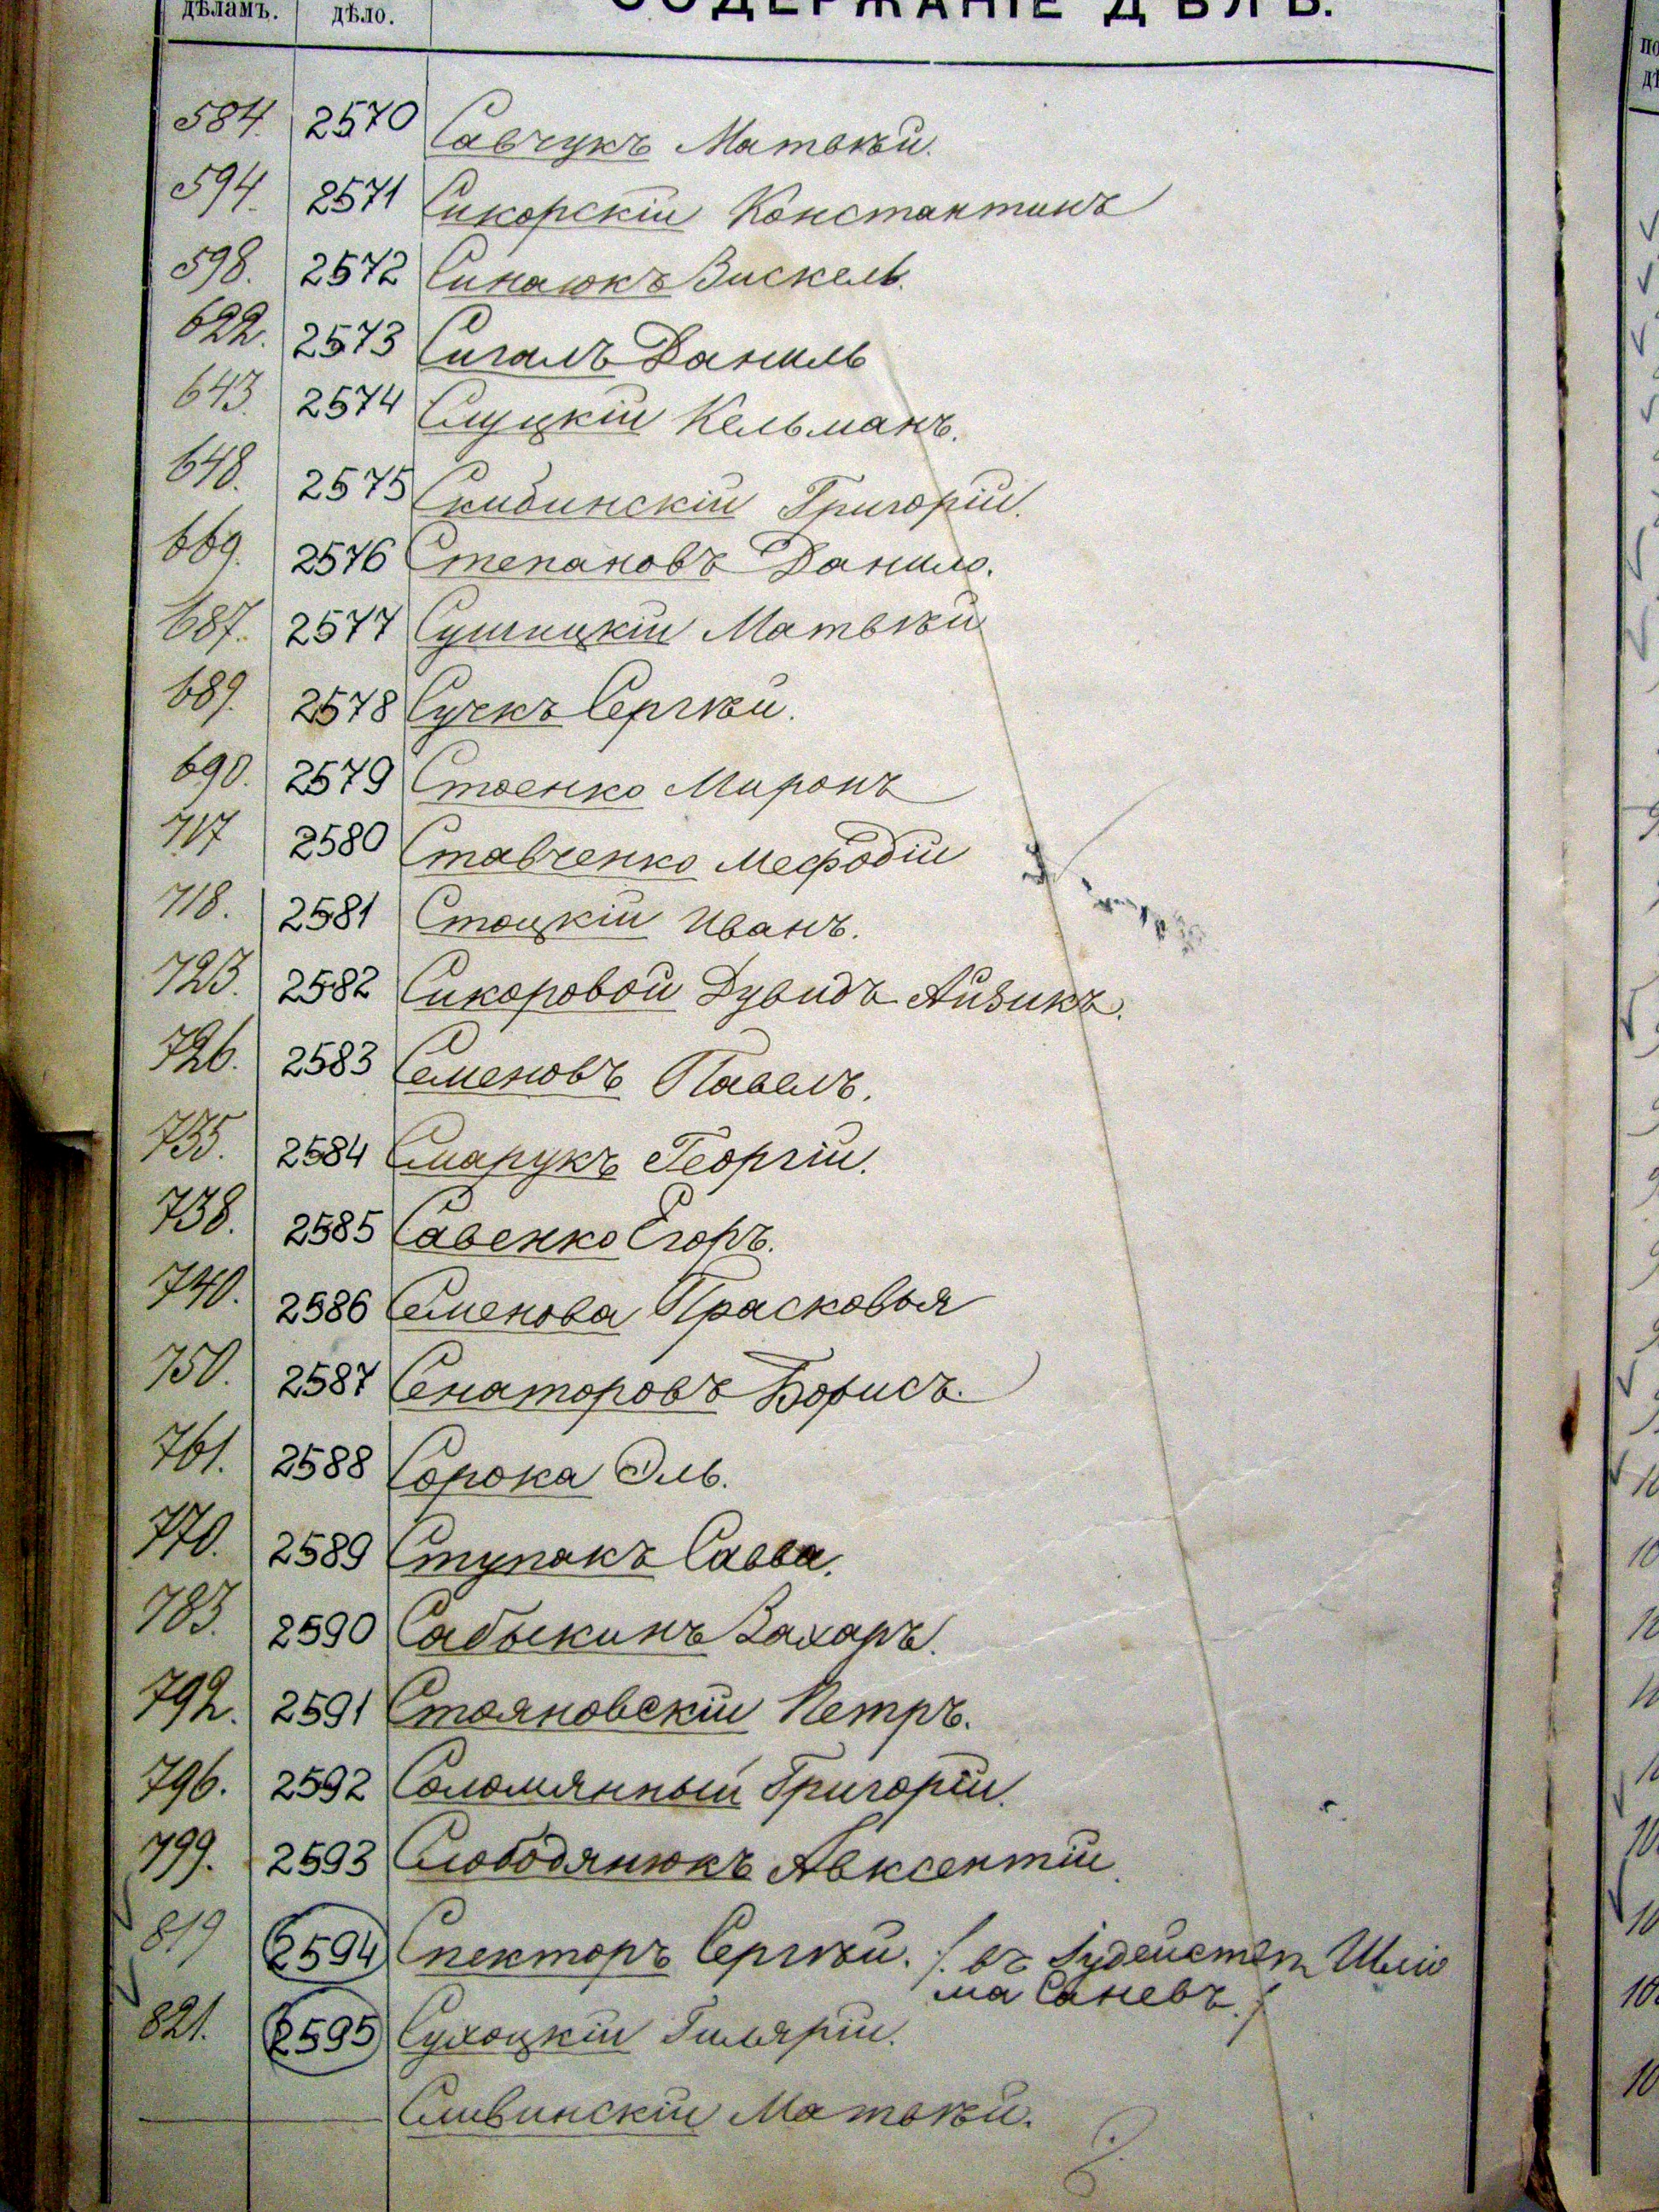 дѣламъ. дѣло. СОДЕРЖАНІЕ ДѢЛЪ.
584. 2570 Савчукъ Матвѣй.
594. 2571 Сикорскій Константинъ
598. 2572 Синаюкъ Зискель.
622. 2573 Сигалъ Даниль
643. 2574 Слуцкій Кельманъ.
648. 2575 Скибинскій Григорій.
669. 2576 Степановъ Данило.
687. 2577 Сушицкій Матвѣй
689. 2578 Сучкъ Сергѣй.
690. 2579 Стоенко Миронъ
717 2580 Ставченко Мефодій
718. 2581 Стоцкій Иванъ.
723. 2582 Сикоровой Дувидъ-Айзикъ.
726. 2583 Семеновъ Павелъ.
735. 2584 Смарукъ Георгій.
738. 2585 Савенко Егоръ.
740. 2586 Семенова Прасковья
750. 2587 Сенаторовъ Борисъ.
761. 2588 Сорока Эль.
770. 2589 Ступакъ Савва.
783. 2590 Сабыкинъ Захаръ.
792. 2591 Стояновскій Петръ.
796. 2592 Соломянный Григорій.
799. 2593 Слободянюкъ Авксентій.
819 2594 Спекторъ Сергѣй. /. въ Іудействѣ Шлио
ма Саневъ ./
821. 2595 Сухоцкій Гилярій.
Сливинскій Матвѣй.